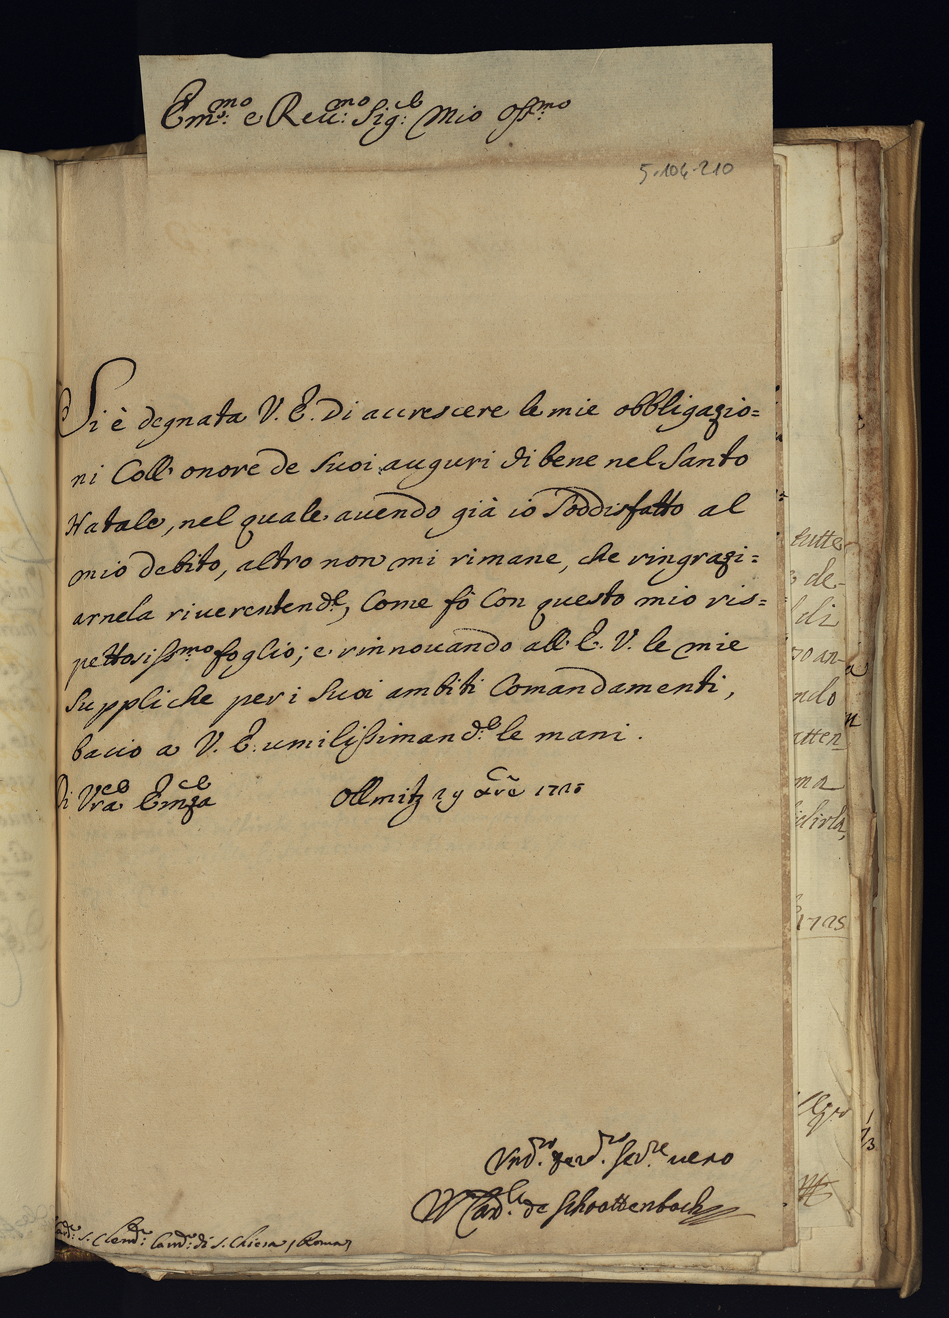 Em.mo e Reu:mo Sig:re Mio oss.mo
5-104-210
Si è degnata V. E. di accrescere le mie obbligazio=
ni Coll' onore de suoi auguri di bene nel Santo
Natale, nel quale auendo già io soddisfatto al
mio debito, altro non mi rimane, che ringrazi=
arnela riuerentem.te, Come fò Con questo mio ris=
pettosiss.mo foglio; e rinnouando all' E. V. le mie
Suppliche per i Suoi ambiti Comandamenti,
bacio a V. E. umilissimam.te le mani.
Di Vra Emza Ollmitz 29 Xbre 1725
seru.re uero
W Card.le de Schrattenbach
S. Clem.te Cam: di S. Chiesa, Roma,
tutte
de-
di
an-
ndo
atten
ma
1725